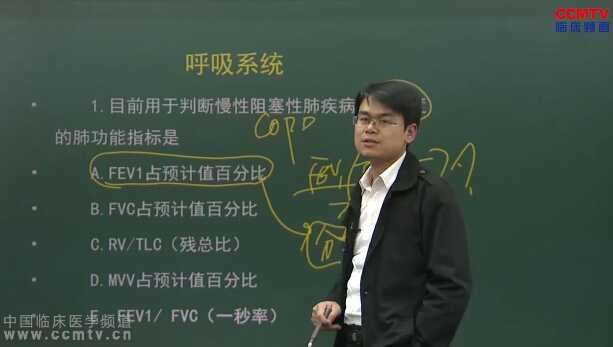 CCMTV
临床频道
呼吸系统
1.目前用于判断慢性阻塞性肺疾病
的肺功能指标是
COPD
A.FEV1占预计值百分比
FEV1
B.FVC占预计值百分比
C.RV/TLC（残总比）
D.MVV占预计值百分比
E. FEV1/ FVC（一秒率）
中国临床医学频道
www.ccmtv.cn